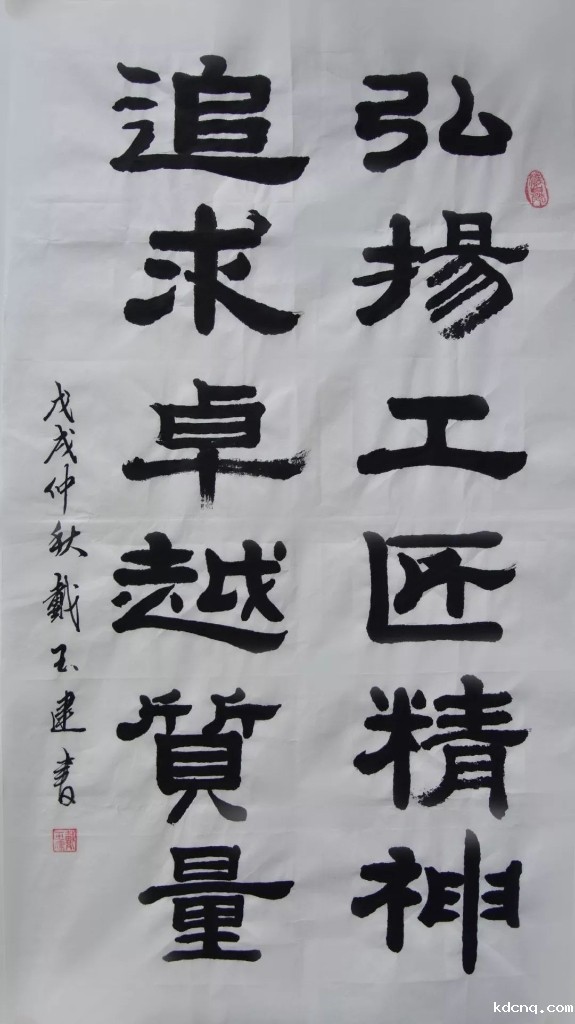 弘揚工匠精神
追求卓越質量
戊戌仲秋戴玉建書
kdcnq.com